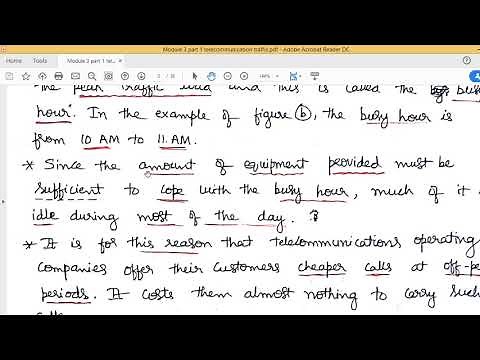 Module 3 part 1 telecommunication traffic.pdf - Adobe Acrobat Reader DC
Home Tools Module 3 part 1 tel...
the peak traffic load and this is called the busy
hour. In the example of figure (b), the busy hour is
from 10 AM to 11 AM.
* Since the amount of equipment provided must be
sufficient to cope with the busy hour, much of it
idle during most of the day.
* It is for this reason that telecommunications operating
companies offer their customers cheaper calls at off-pe
periods. It costs them almost nothing to carry such